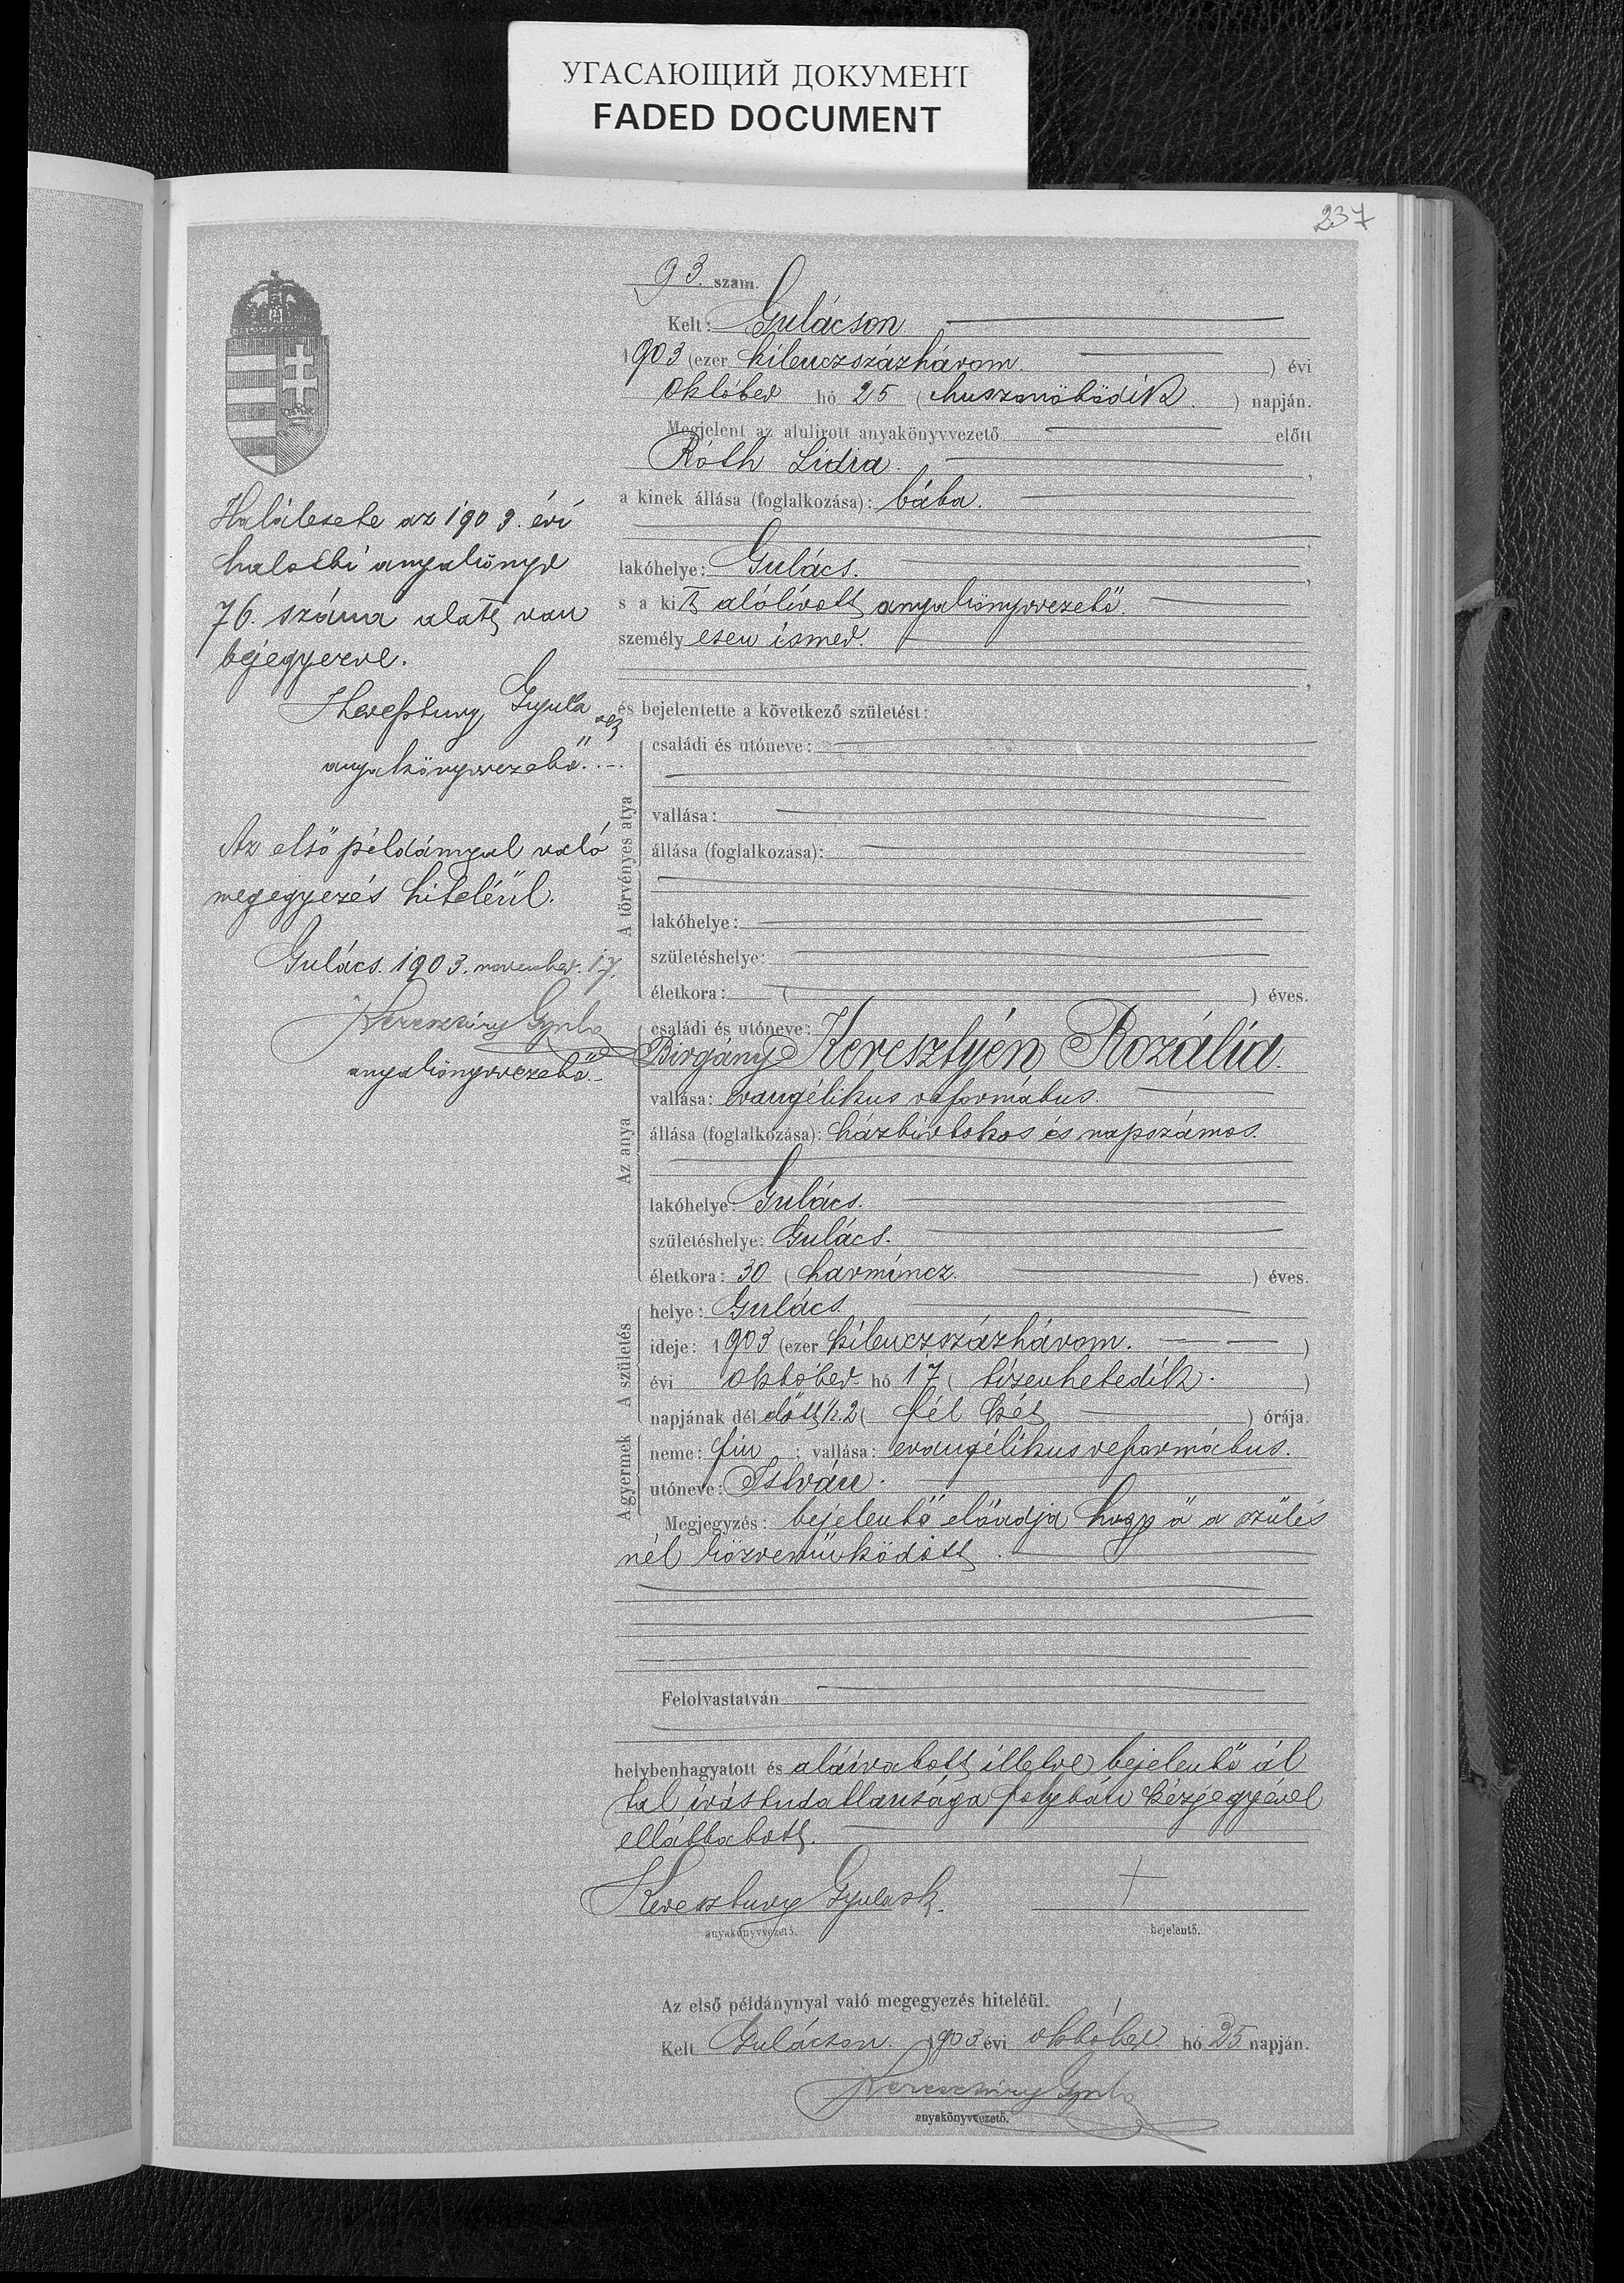 УГАСАЮЩИЙ ДОКУМЕНТ
FADED DOCUMENT
237
93. szám.
Kelt: Gulácson
1903 (ezer kilenczszázhárom ) évi
október hó 25 (huszonötödik ) napján.
Megjelent az alulirott anyakönyvvezető előtt
Róth Lidia.
a kinek állása (foglalkozása): bába.
lakóhelye: Gulács.
s a kit alólírott anyakönyvvezető
személyesen ismer.
és bejelentette a következő születést:
A törvényes atya
családi és utóneve:
vallása:
állása (foglalkozása):
lakóhelye:
születéshelye:
életkora: ( ) éves.
Az anya
családi és utóneve:
Birgány Keresztyén Rozália.
vallása: evangélikus református.
állása (foglalkozása): házbirtokos és napszámos.
lakóhelye: Gulács.
születéshelye: Gulács.
életkora: 30 (harmincz. ) éves.
A születés
helye: Gulács
ideje: 1903 (ezer kilenczszázhárom. )
évi október hó 17 (tizenhetedik. )
napjának dél előtt ½2 (fél két ) órája.
A gyermek
neme: fiu ; vallása: evangélikus református.
utóneve: István.
Megjegyzés: bejelentő előadja hogy ő a szülés
nél közreműködött.
Felolvastatván
helybenhagyatott és aláiratott illetve bejelentő ál
tal írástudatlansága folytán kézjegyével
elláttatott.
Keresztury Gyula sk. +
anyakönyvvezető. bejelentő.
Az első példánynyal való megegyezés hiteléül.
Kelt Gulácson. 1903 évi október. hó 25 napján.
Keresztury Gyula
anyakönyvvezető.
Halálesete az 1903. évi
halotti anyakönyv
76. száma alatt van
bejegyezve.
Keresztury Gyula
anyakönyvvezető.
Az első példánnyal való
megegyezés hiteléül.
Gulács. 1903. november. 17.
Keresztury Gyula
anyakönyvvezető.